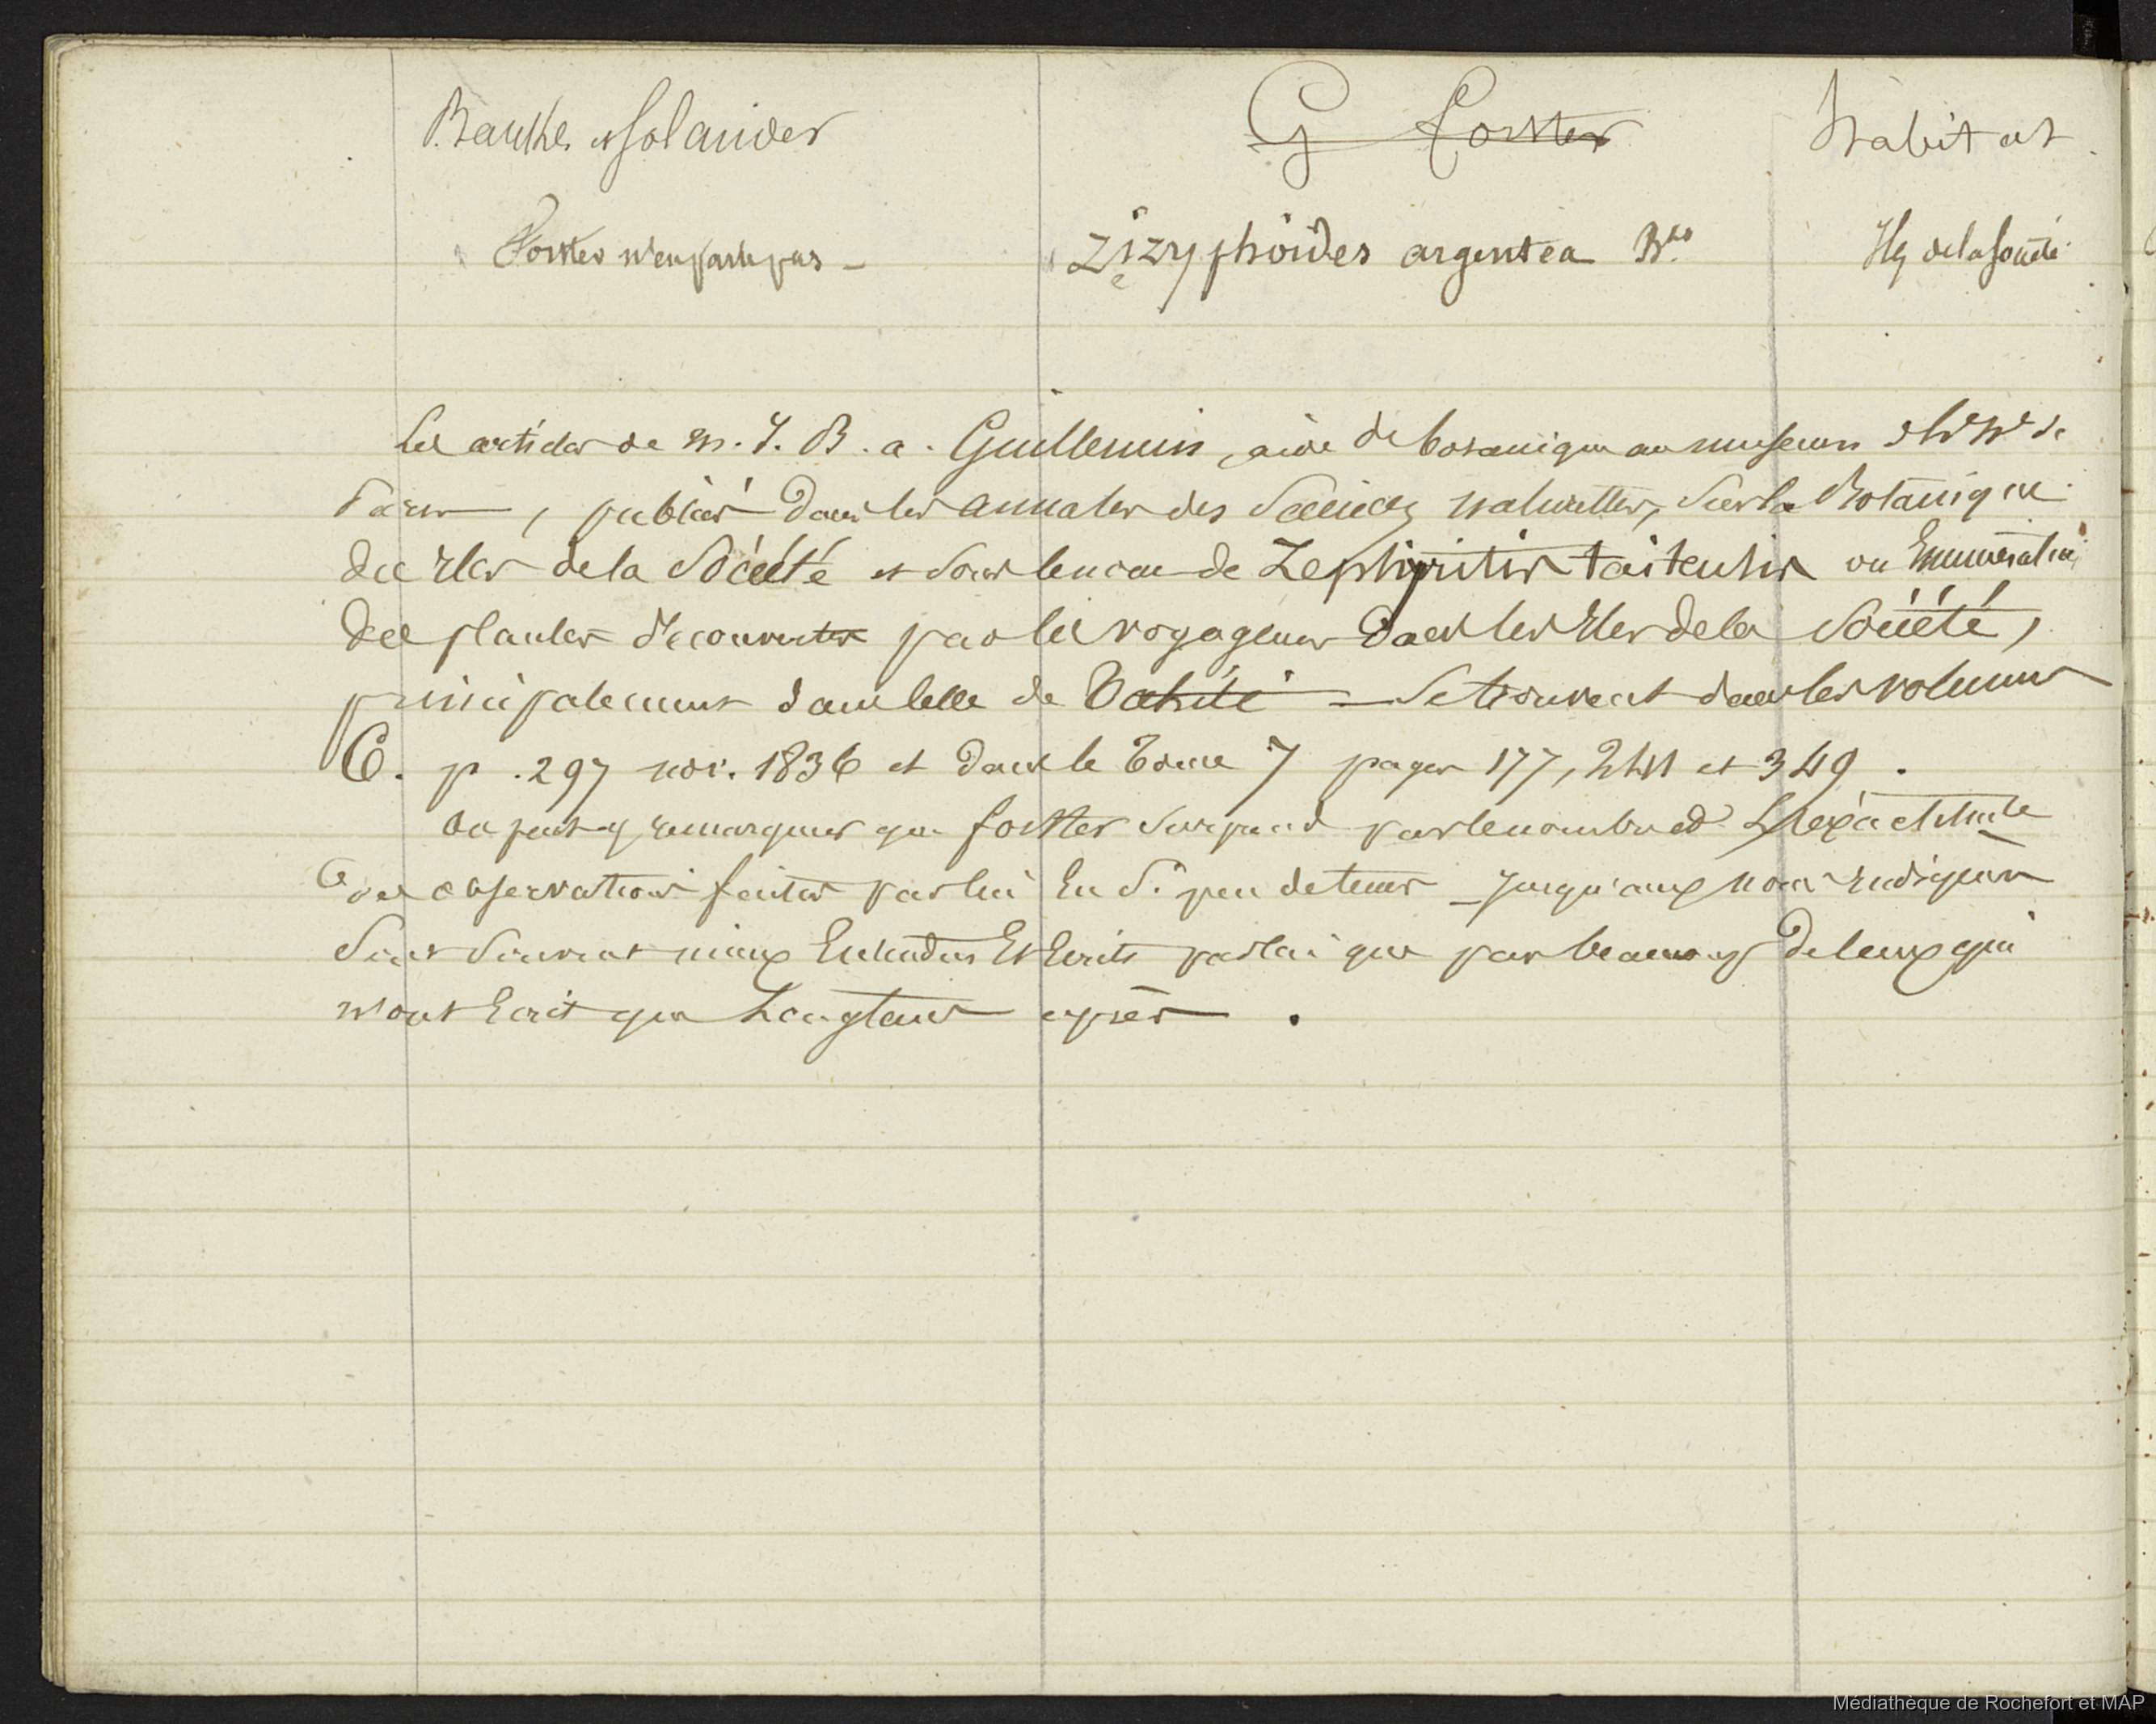 Banks et Solander G Forster habitat
Forster n'en parle pas – Zizyphoides argentea Bks Iles de la Société
Les articles de M. J. B. a. Guillemin, aide de botanique au museum d'hre nle de
Paris, publiés dans les annales des Sciences naturelles, Sur la Botanique
des Iles de la Société et sous le nom de Zephiritis taitensis ou Enumération
des plantes découvertes par les voyageurs dans les Iles de la Société,
principalement dans celle de Tahiti – Se trouvent dans les volumes
6. p. 297 nov. 1836 et dans le Tome 7 pages 177, 241 et 349.
On peut y remarquer que forster surprend par le nombre et L'exactitude
des observations faites par lui En si peu de tems – Jusqu'aux noms indigènes
Sont Souvent mieux Entendus Et Ecrits par lui que par beaucoup de ceux qui
n'ont Ecrit que Longtems après.
Médiathèque de Rochefort et MAP